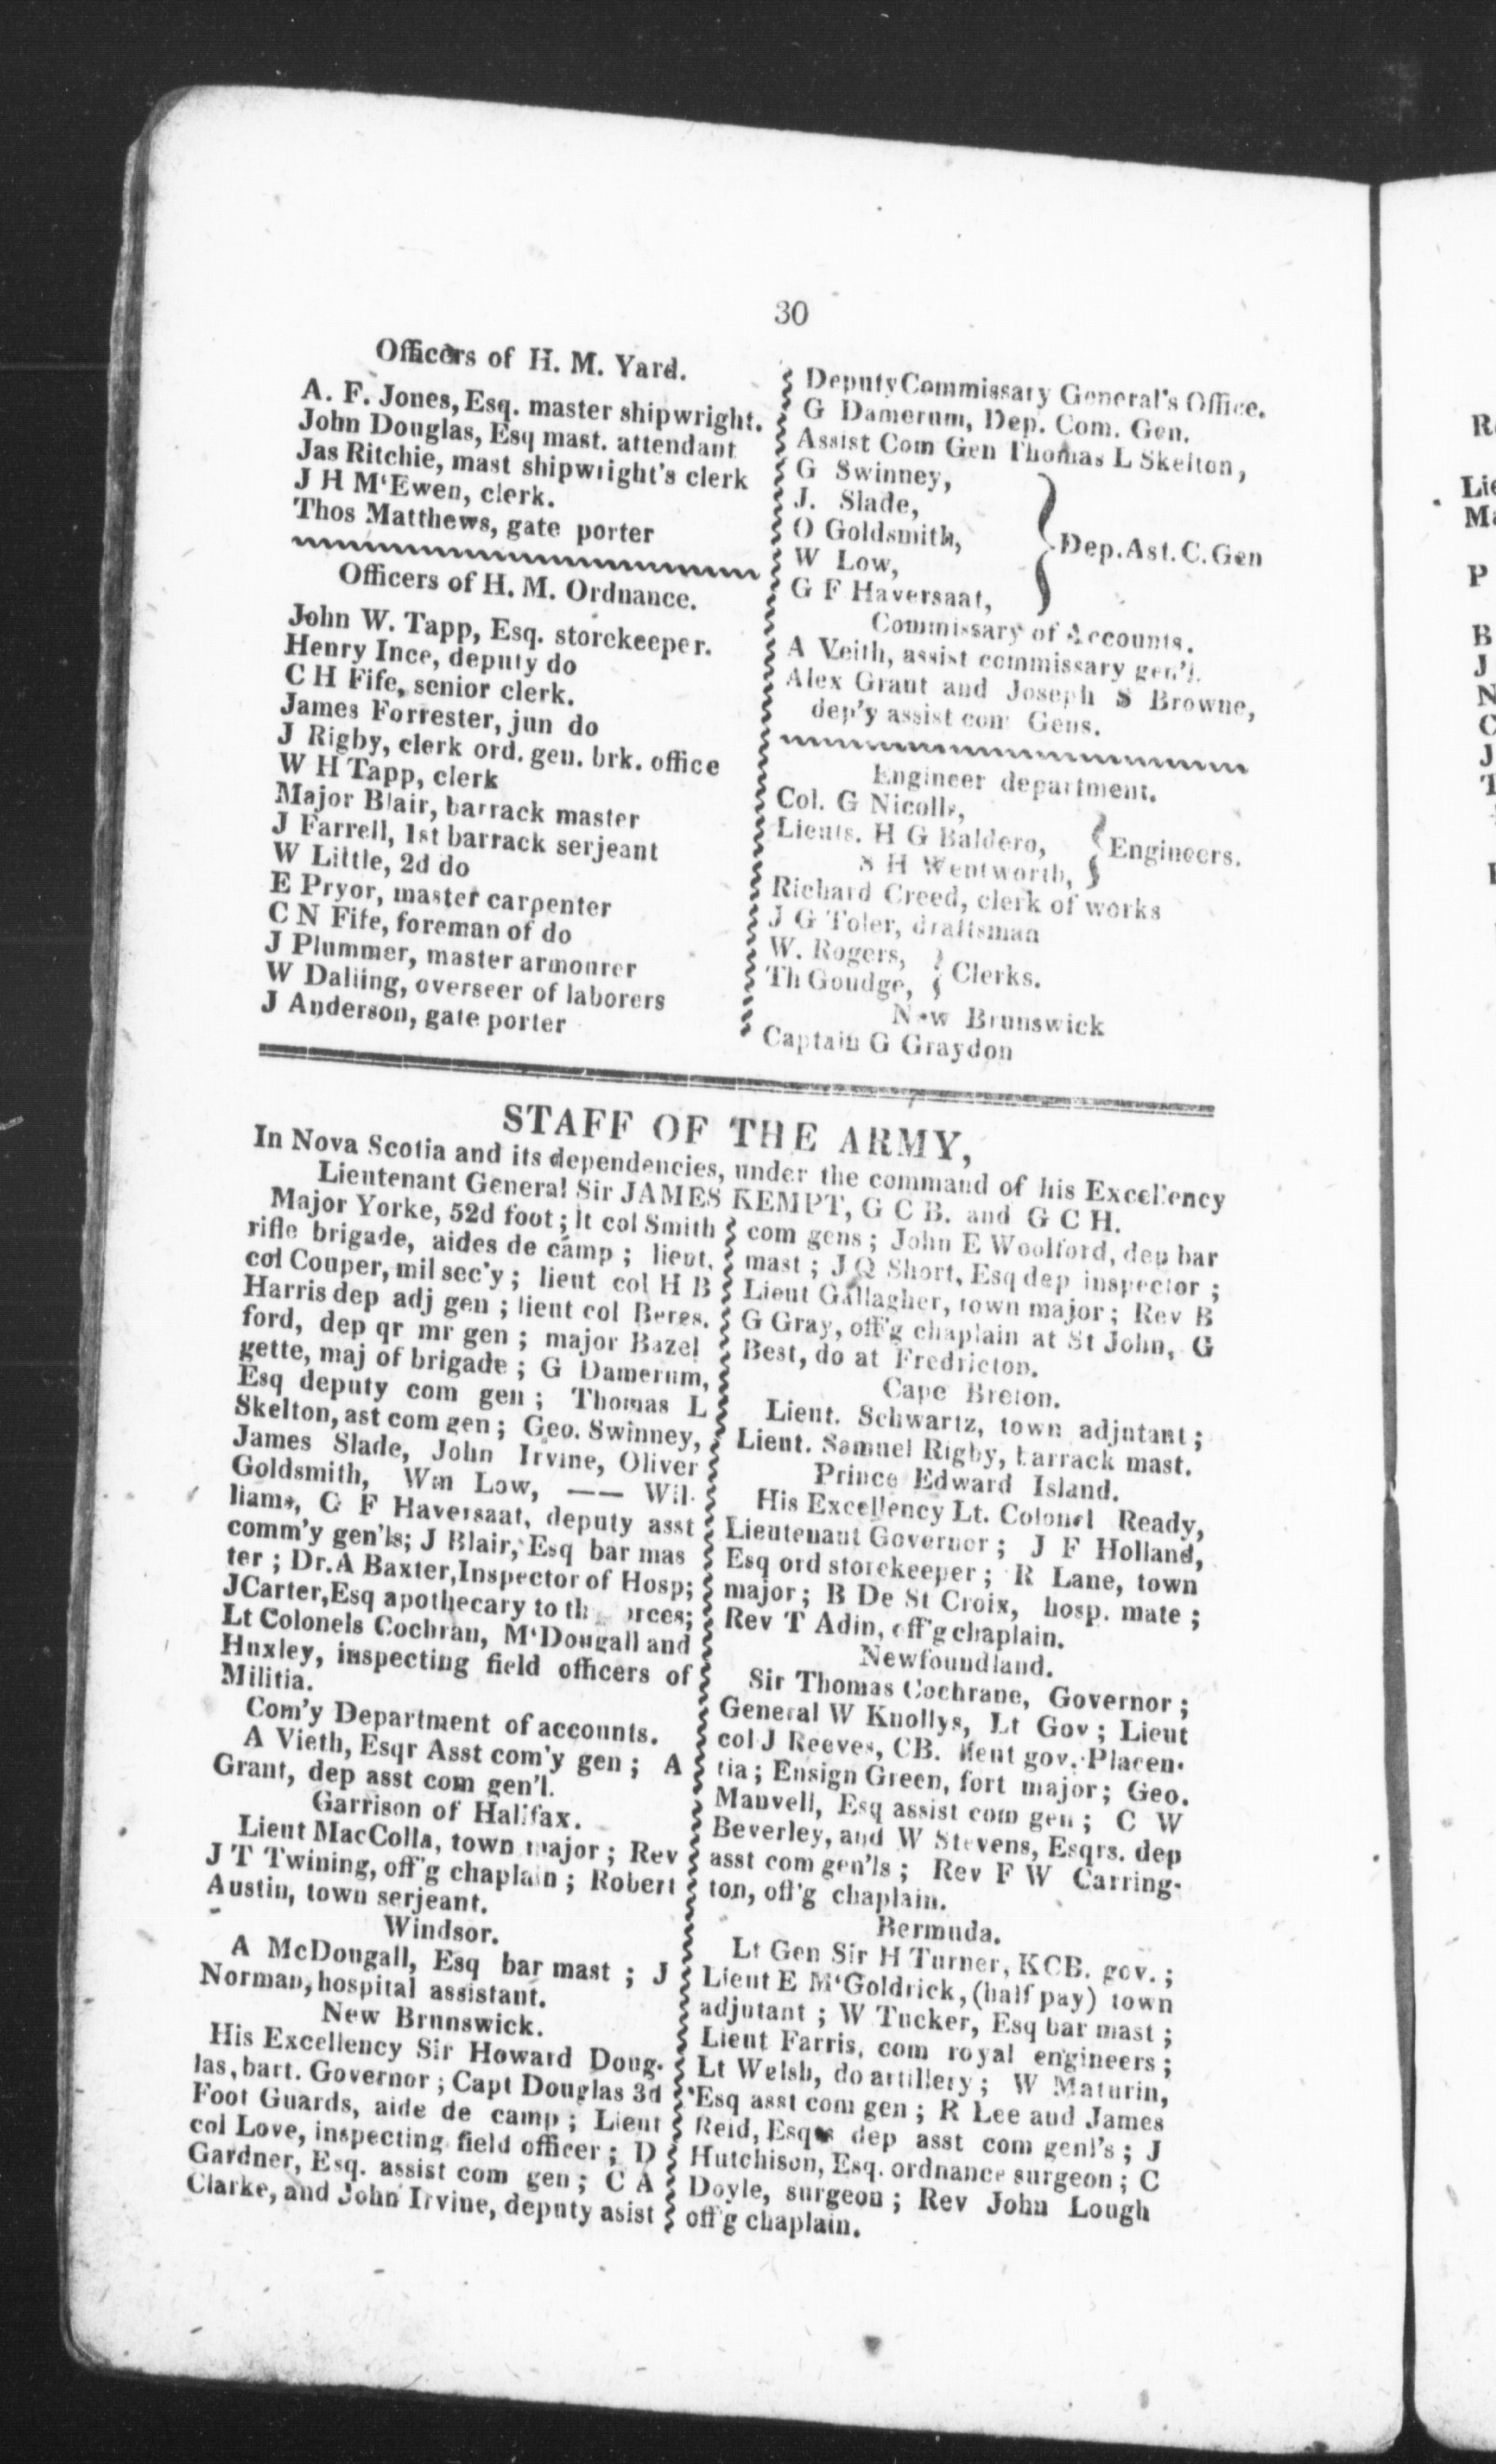 30
Officers of H. M. Yard.
A. F. Jones, Esq. master shipwright.
John Douglas, Esq mast. attendant
Jas Ritchie, mast shipwright's clerk
J H M'Ewen, clerk.
Thos Matthews, gate porter
Officers of H. M. Ordnance.
John W. Tapp, Esq. storekeeper.
Henry Ince, deputy do
C H Fife, senior clerk.
James Forrester, jun do
J Rigby, clerk ord. gen. brk. office
W H Tapp, clerk
Major Blair, barrack master
J Farrell, 1st barrack serjeant
W Little, 2d do
E Pryor, master carpenter
C N Fife, foreman of do
J Plummer, master armourer
W Daling, overseer of laborers
J Anderson, gate porter
Deputy Commissary General's Office.
G Damerum, Dep. Com. Gen.
Assist Com Gen Thomas L Skelton,
G Swinney,
J. Slade,
O Goldsmith,
Dep. Ast. C. Gen
W Low,
G F Haversaat,
Commissary of Accounts.
A Veith, assist commissary gen'l.
Alex Grant and Joseph S Browne,
dep'y assist com Gens.
Engineer department.
Col. G Nicolls,
Lieuts. H G Baldero,
Engineers.
S H Wentworth,
Richard Creed, clerk of works
J G Toler, draftsman
W. Rogers,
Clerks.
Th Goudge,
New Brunswick
Captain G Graydon
STAFF OF THE ARMY,
In Nova Scotia and its dependencies, under the command of his Excellency
Lieutenant General Sir JAMES KEMPT, G C B. and G C H.
Major Yorke, 52d foot; lt col Smith
rifle brigade, aides de camp; lieut.
col Couper, mil sec'y; lieut col H B
Harris dep adj gen; lieut col Beres.
ford, dep qr mr gen; major Bazel
gette, maj of brigade; G Damerum,
Esq deputy com gen; Thomas L
Skelton, ast com gen; Geo. Swinney,
James Slade, John Irvine, Oliver
Goldsmith, Wm Low, —— Wil-
liams, G F Haversaat, deputy asst
comm'y gen'ls; J Blair, Esq bar mas
ter; Dr. A Baxter, Inspector of Hosp;
J Carter, Esq apothecary to
Lt Colonels Cochran, M'Dougall and
Huxley, inspecting field officers of
Militia.
Com'y Department of accounts.
A Vieth, Esqr Asst com'y gen; A
Grant, dep asst com gen'l.
Garrison of Halifax.
Lieut MacColla, town major; Rev
J T Twining, off'g chaplain; Robert
Austin, town serjeant.
Windsor.
A McDougall, Esq bar mast; J
Norman, hospital assistant.
New Brunswick.
His Excellency Sir Howard Doug-
las, bart. Governor; Capt Douglas 3d
Foot Guards, aide de camp; Lieut
col Love, inspecting field officer; D
Gardner, Esq. assist com gen; C A
Clarke, and John Irvine, deputy asist
com gens; John E Woolford, dep bar
mast; J Q Short, Esq dep inspector;
Lieut Gallagher, town major; Rev B
G Gray, off'g chaplain at St John, G
Best, do at Fredricton.
Cape Breton.
Lieut. Schwartz, town adjutant;
Lieut. Samuel Rigby, barrack mast.
Prince Edward Island.
His Excellency Lt. Colonel Ready,
Lieutenant Governor; J F Holland,
Esq ord storekeeper; R Lane, town
major; B De St Croix, hosp. mate;
Rev T Adin, off'g chaplain.
Newfoundland.
Sir Thomas Cochrane, Governor;
General W Knollys, Lt Gov; Lieut
col J Reeves, CB. lieut gov. Placen-
tia; Ensign Green, fort major; Geo.
Manvell, Esq assist com gen; C W
Beverley, and W Stevens, Esqrs. dep
asst com gen'ls; Rev F W Carring-
ton, off'g chaplain.
Bermuda.
Lt Gen Sir H Turner, KCB. gov.;
Lieut E M'Goldrick, (half pay) town
adjutant; W Tucker, Esq bar mast;
Lieut Farris, com royal engineers;
Lt Welsh, do artillery; W Maturin,
Esq asst com gen; R Lee and James
Reid, Esqrs dep asst com genl's; J
Hutchison, Esq. ordnance surgeon; C
Doyle, surgeon; Rev John Lough
off'g chaplain.